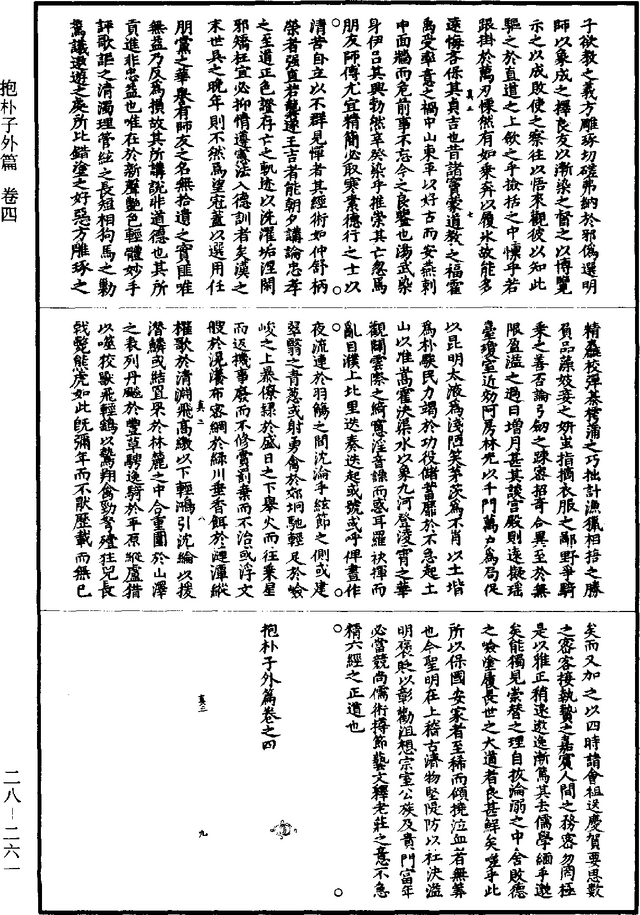 抱朴子外篇 卷四
二八—二六一
子欲教之義方雕琢切磋弗納於邪偽選明
師以象成之擇良友以漸染之督之以博覽
示之以成敗使之察往以悟來觀彼以知此
驅之於直道之上斂之乎檢括之中懍乎若
跟掛於萬仞慄然有如乘奔以履冰故能多
真二 七
遠悔吝保其貞吉也昔諸竇蒙遺教之福霍
禹受率意之禍中山東平以好古而安燕剌
由面牆而危前事不忘今之良鑒也湯武染
乎伊呂其興勃然辛癸染乎推崇其亡忽焉
朋友師傅尤宜精簡必取寒素德行之士以
清苦自立以不群見憚者其經術如仲舒桓
榮者強直若龔遂王吉者能朝夕講論忠孝
之至道正色證存亡之軌迹以洗濯垢涅閑
邪矯枉宜必抑情遵憲法入德訓者矣漢之
末世吳之晚年則不然焉望冠蓋以選用任
朋黨之華譽有師友之名無拾遺之實匪唯
無益乃反為損故其所講說非道德也其所
貢進非忠益也唯在於新聲艷色輕體妙手
評歌謳之清濁理管絃之長短相狗馬之勦
駑議遨遊之處所比錯塗之好惡方雕琢之
精麤校彈棊樗蒲之巧拙計漁獵相掊之勝
負品藻妓妾之妍蚩指摘衣服之鄙野爭騎
乘之善否論弓劒之踈密招奇合異至於無
限盈溢之過日增月甚其談宮殿則遠擬瑤
臺瓊室近效阿房林光以千門萬戶為局促
以昆明太液為淺陋笑茅茨為不肖以土堦
為朴騃民力竭於功役儲蓄靡於不急起土
山以准嵩霍決渠水以象九河登凌霄之華
觀闢雲際之綺窗淫音譟而惑耳羅袂揮而
亂目濮上北里迭奏迭起或號或呼俾晝作
夜流連於羽觴之間沈淪乎絃節之側或建
翠翳之青葱或射勇禽於郊坰馳輕足於嶮
峻之上暴僚隸於盛日之下舉火而往乘星
而返機事廢而不修賞罰棄而不治或浮文
艘於滉瀁布密網於綠川垂香餌於漣潭縱
真二 八
櫂歌於清淵飛高繳以下輕鴻引沈綸以援
潛鱗或結罝罘於林麓之中合重圍於山澤
之表列丹飇於豐草騁逸騎於平原縱盧猎
以噬狡獸飛輕鷂以鷙翔禽勁弩殪狂兕長
戟斃熊虎如此既彌年而不猒歷載而無已
矣而又加之以四時請會祖送慶賀要思數
之密客接執贄之嘉賓人間之務密勿罔極
是以雅正稍遠遨逸漸篤其去儒學緬乎邈
矣能獨見崇替之理自拔淪溺之中舍敗德
之嶮塗履長世之大道者良甚鮮矣嗟乎此
所以保國安家者至稀而傾撓泣血者無筭
也今聖明在上稽古濟物堅隄防以杜決溢
明褒貶以彰勸沮想宗室公族及貴門富年
必當競尚儒術撙節藝文釋老莊之意不急
精六經之正道也
抱朴子外篇卷之四
真二 九